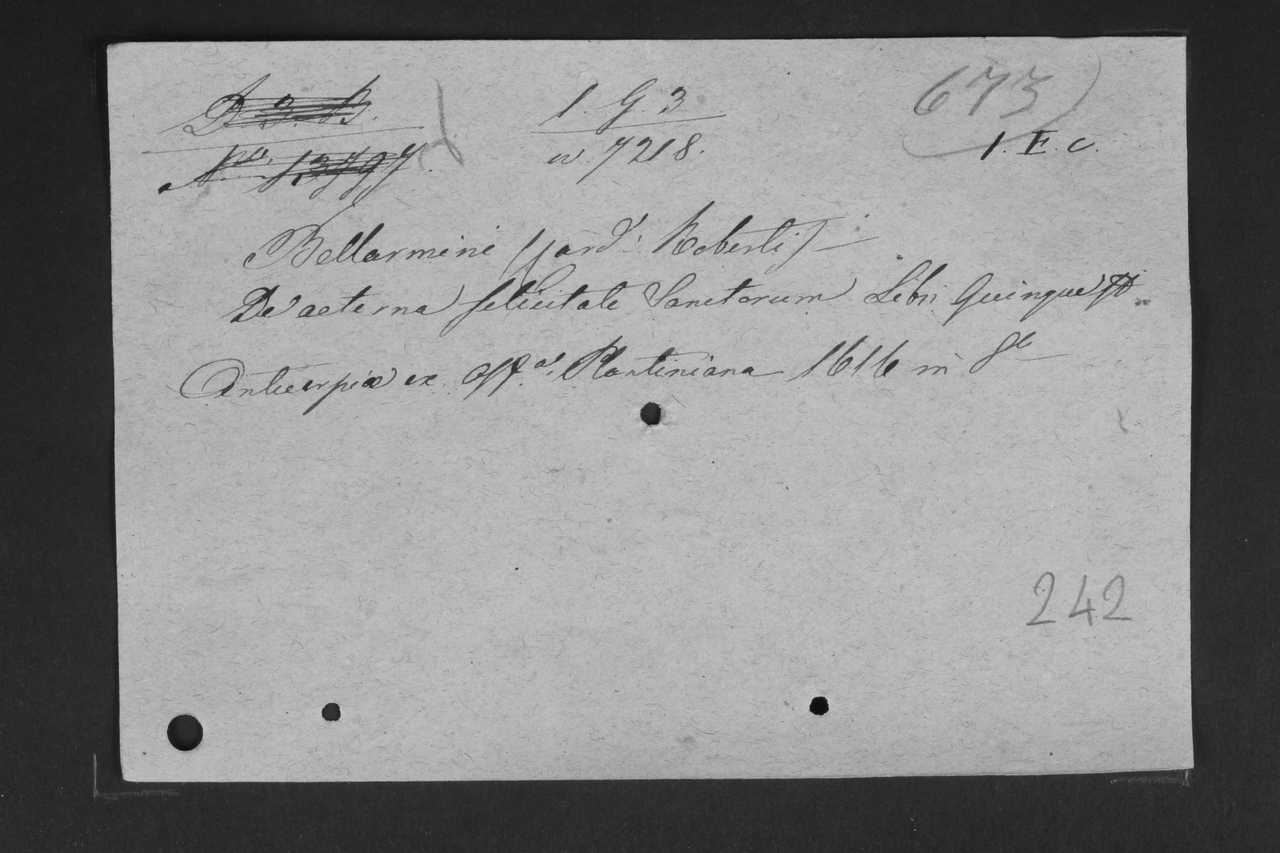 D. 3. B. 1. G 3 673
No. 13797. w 7218. 1. E. c.
Bellarmini (Card: Roberti)
De aeterna felicitate Sanctorum Libri Quinque
Antuerpiae ex offa. Plantiniana 1616 in 8o
242